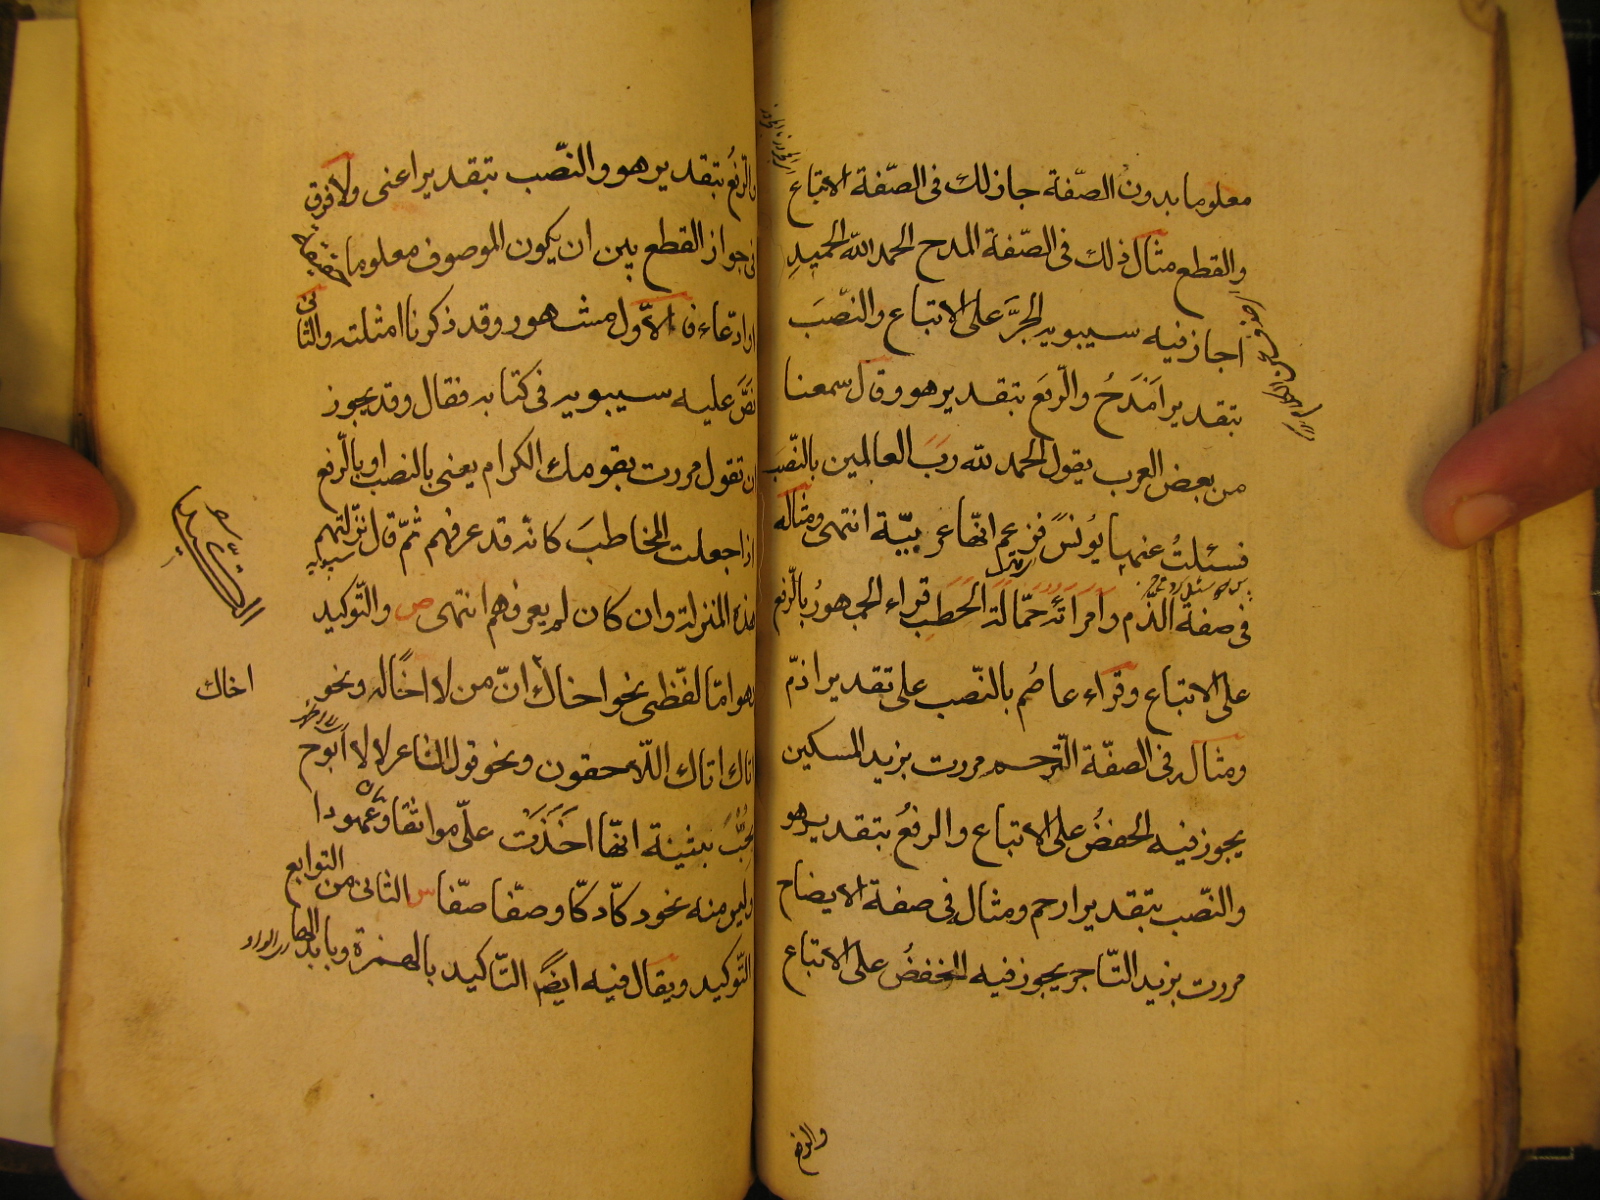 معلوما بدون الصّفة جاز لك فى الصّفة الاتباع
والقطع مثال ذلك فى الصّفة المدح الحمد الله الحميدِ
اجاز فيه سيبويه الجرَّ على الاتباع والنصّبَ
بتقدير اَمْدَحُ والرّفعَ بتقدير هو وقال سمعنا
من بعض العرب يقول الحمد لله ربَّ العالمين بالنّصب
فسئلتُ عنها يُونُسَ فزعم انّها عربيّة انتهى ومثاله
فى صفة الذّم وامراته حمّالة الحطب قراء الجمهورُ بالرّفع
على الاتباع وقراء عاصُم بالنّصب على تقدير اذمّ
ومثاله فى الصفّة التّرحم مررت بزيد المسكين
يجوز فيه الخفضُ على الاتباع والرفعُ بتقدير هو
والنصّب بتقدير ارحم ومثاله فى صفة الايضاح
مررت بزيد التّاجر يجوز فيه الخفضُ على الاتباع
والرفع
والرّفعُ بتقدير هو والنصّب بتقدير اعنى ولا فرق
فى جواز القطع بين ان يكون الموصوف معلوما حقيقة
او ادّعاء فالاوّل مشهور وقد ذكرنا امثلته والثانى
نصَّ عليه سيبويه فى كتابه فقال وقد يجوز
ان تقول مررت بقومك الكرام يعنى بالنصب او بالرّفع
اذا جعلت المخاطبَ كانّه قد عرفهم ثمّ قال نزّلتهم
هذه المنزلة وان كان لم يعرفهم انتهى ص والتّوكيد
وهو امّا لفظى نحو اخاك انّ من لا اخًا له ونحو
اخاك
اتاك اتاك اللّاحقون ونحو قول الشاعر لا لا اَبُوح
بحُبِّ بثينة انّها اخَذَت علىّ مواثقا وعهودا
وليس منه نحو دكّا دكّا وصفّا صفّا س الثانى من التوابع
التّوكيد ويقال فيه ايضًا التّاكيد بالهمزة وبابدالها